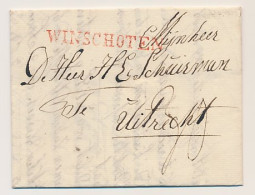 WINSCHOTEN
Mijnheer
De Heer H E Schuirman
Te
Uitrecht